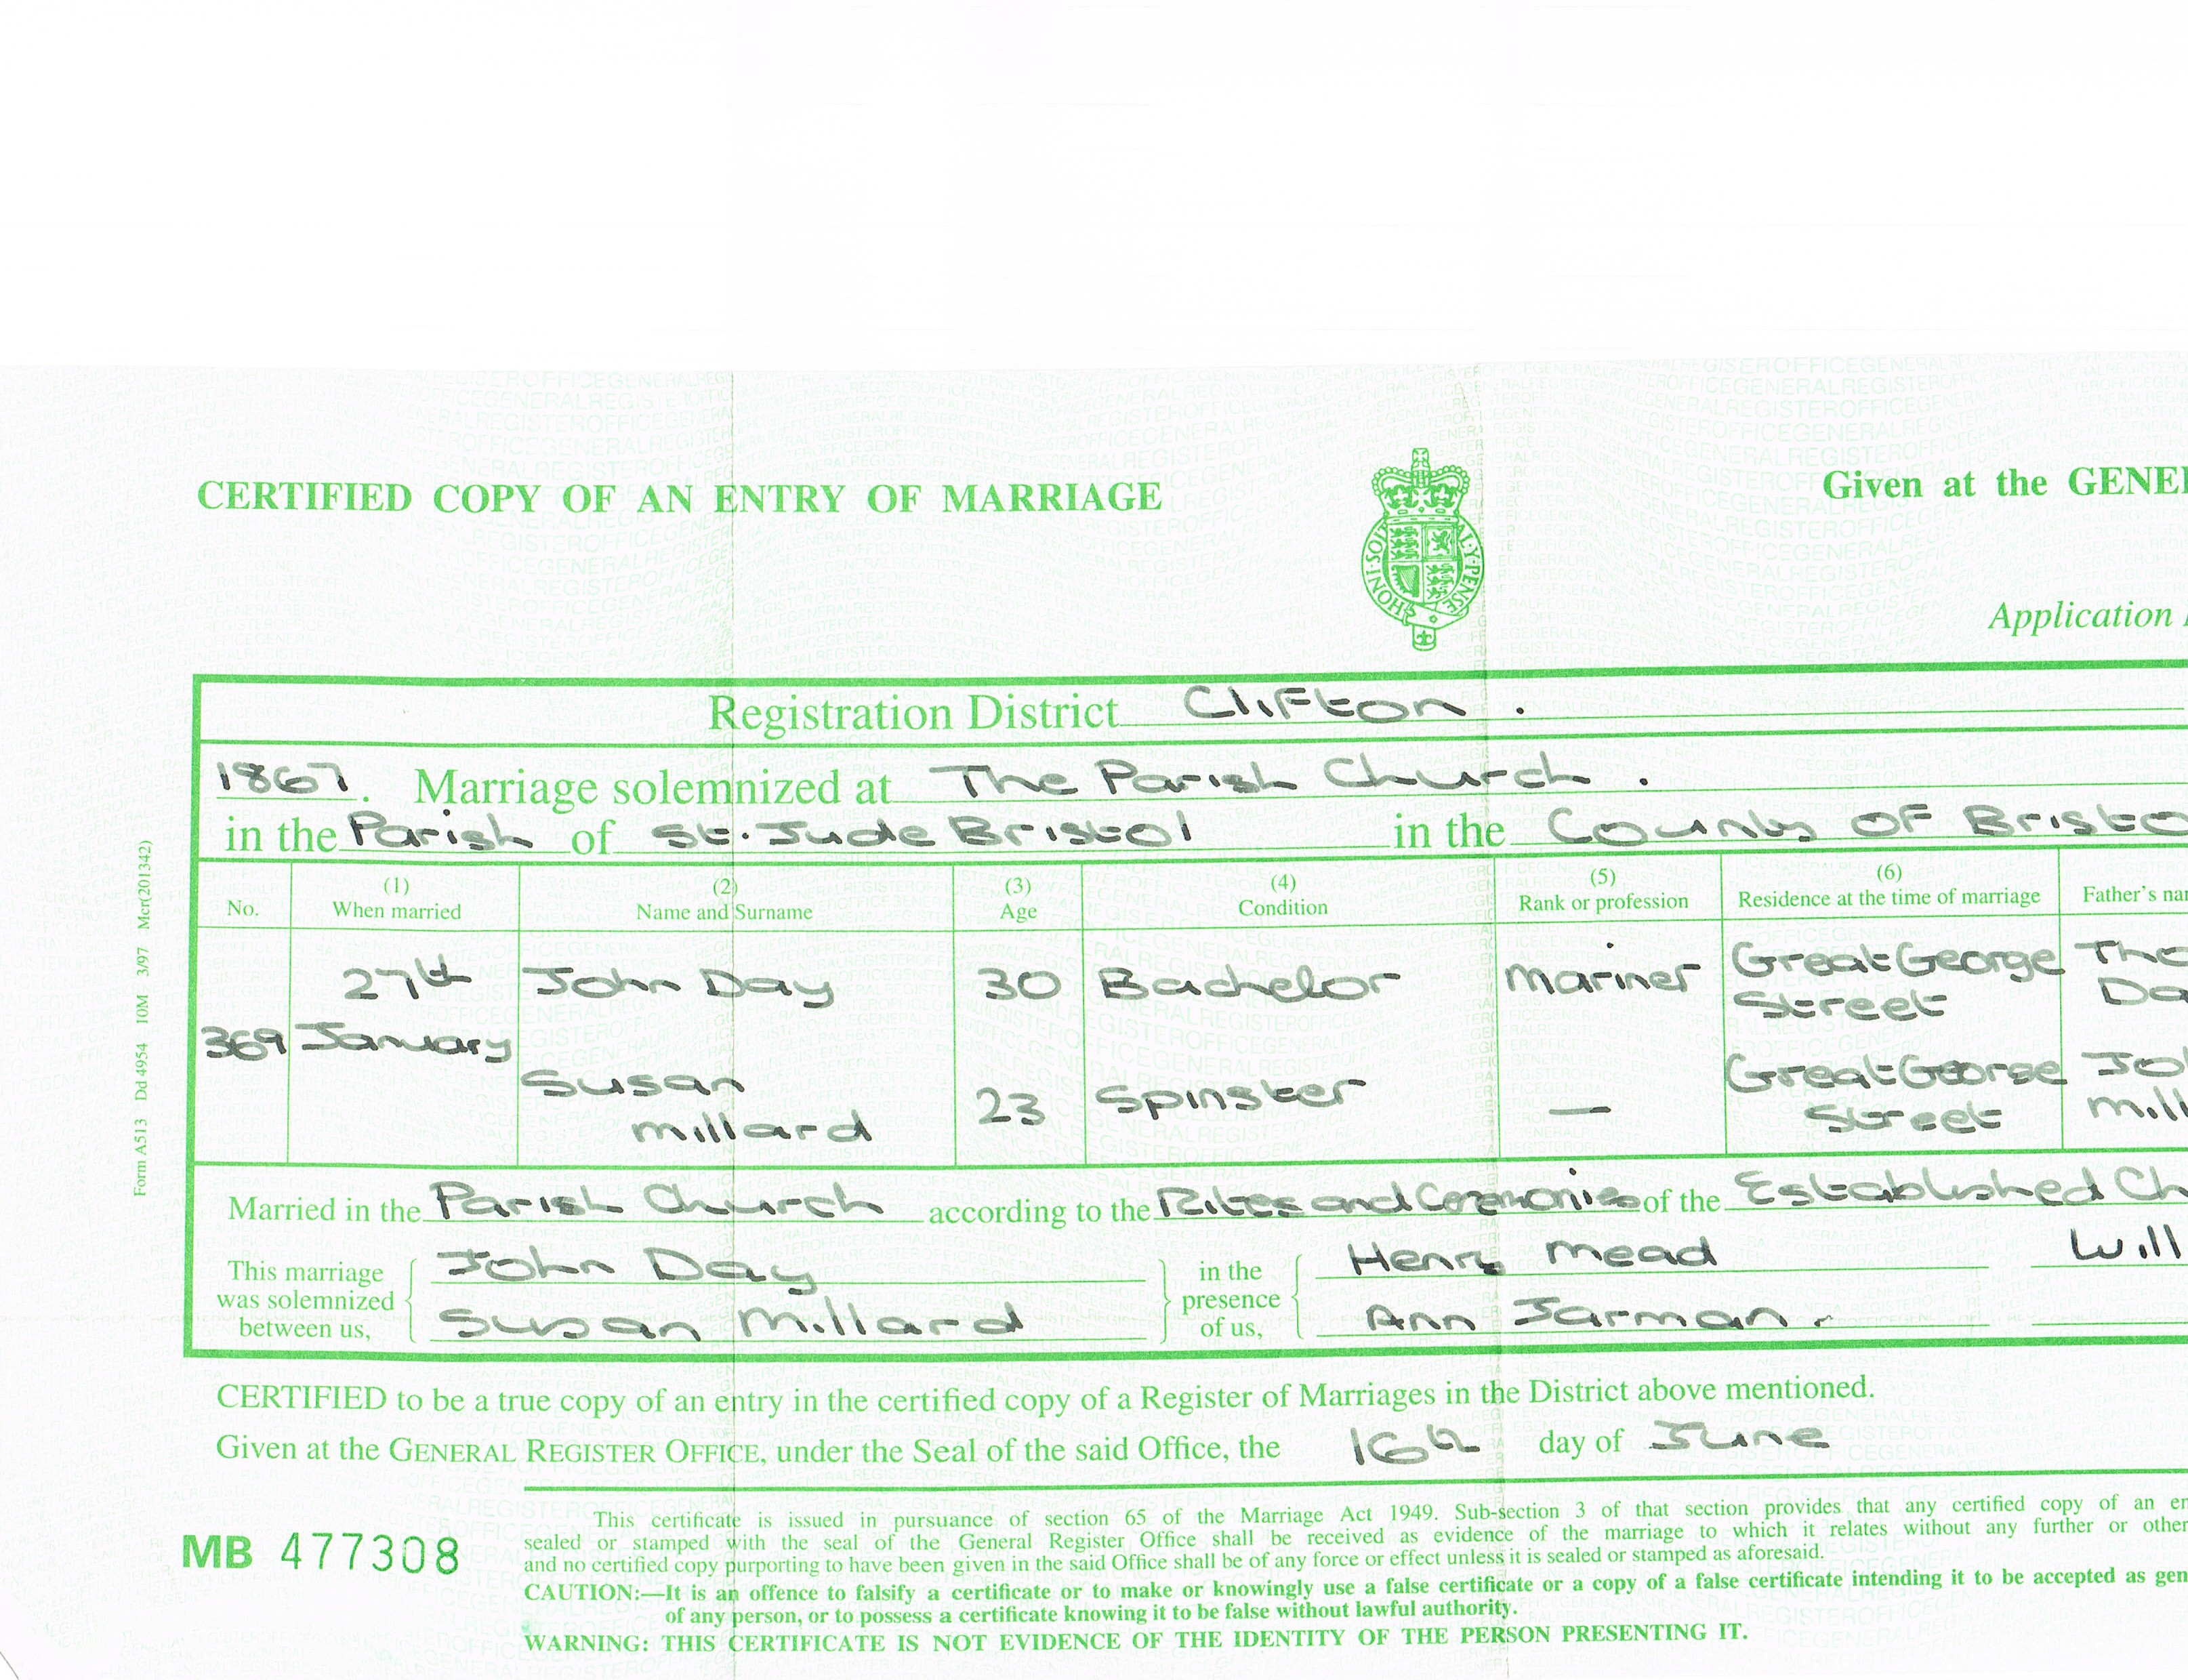 CERTIFIED COPY OF AN ENTRY OF MARRIAGE
Given at the GENE
HONI·SOIT AL·Y·PENSE
Application
Registration District Clifton .
1867. Marriage solemnized at The Parish Church .
in the Parish of St. Jude Bristol in the County of Bristo
No.
(1) When married
(2) Name and Surname
(3) Age
(4) Condition
(5) Rank or profession
(6) Residence at the time of marriage
Father's na
369
27th January
John Day
30
Bachelor
Mariner
Great George Street
Tho
Da
Susan Millard
23
Spinster
—
Great George Street
Jo
Mill
Married in the Parish Church according to the Rites and Ceremonies of the Established Ch
This marriage was solemnized between us,
John Day
Susan Millard
in the presence of us,
Henry Mead
Ann Jarman.
Will
CERTIFIED to be a true copy of an entry in the certified copy of a Register of Marriages in the District above mentioned.
Given at the GENERAL REGISTER OFFICE, under the Seal of the said Office, the 16th day of June
MB 477308
This certificate is issued in pursuance of section 65 of the Marriage Act 1949. Sub-section 3 of that section provides that any certified copy of an en
sealed or stamped with the seal of the General Register Office shall be received as evidence of the marriage to which it relates without any further or other
and no certified copy purporting to have been given in the said Office shall be of any force or effect unless it is sealed or stamped as aforesaid.
CAUTION:—It is an offence to falsify a certificate or to make or knowingly use a false certificate or a copy of a false certificate intending it to be accepted as gen
of any person, or to possess a certificate knowing it to be false without lawful authority.
WARNING: THIS CERTIFICATE IS NOT EVIDENCE OF THE IDENTITY OF THE PERSON PRESENTING IT.
Form A513 Dd 4954 10M 3/97 Mcr(201342)